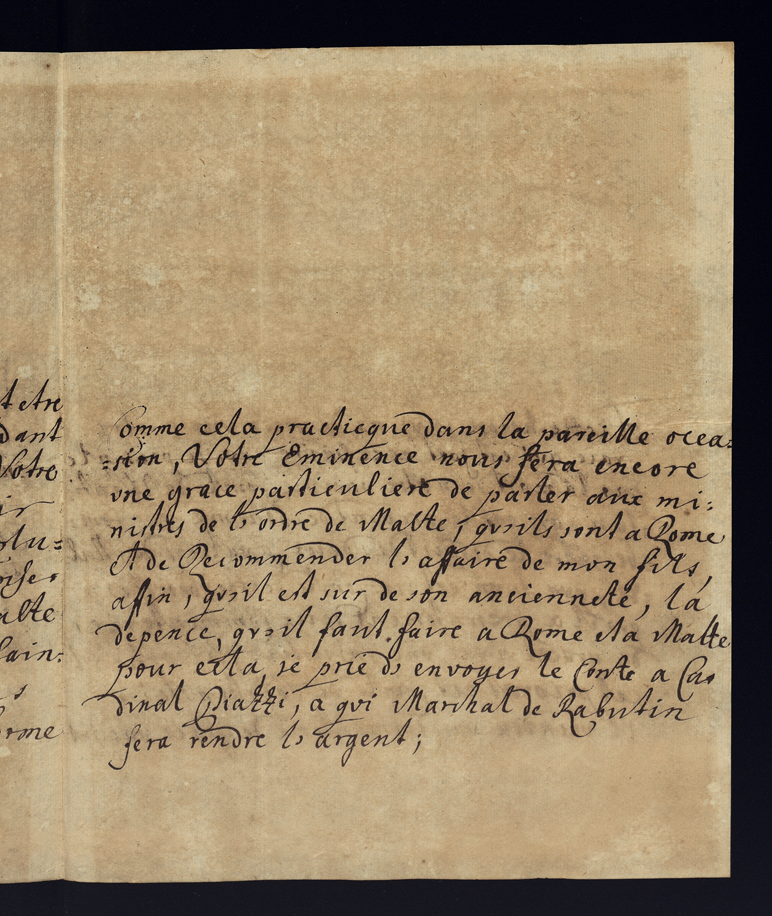 t etre
dant
Votre
ir
rlu=
nse
alte
lain:
s
orme
Comme cela practicque dans la pareille occa=
=sion, Votre Eminence nous fera encore
vne grace particuliere de parler aux mi:
nistres de l'ordre de Malte, qu'ils sont a Rome
Et de Recommender l'affaire de mon fils,
affin, qu'il est sur de son ancienneté, la
depence, qu'il faut faire a Rome et a Malte
pour cela, je prie d'envoyer le Conte a Car
dinal Piazzi, a qui Marchal de Rabutin
fera rendre l'argent;